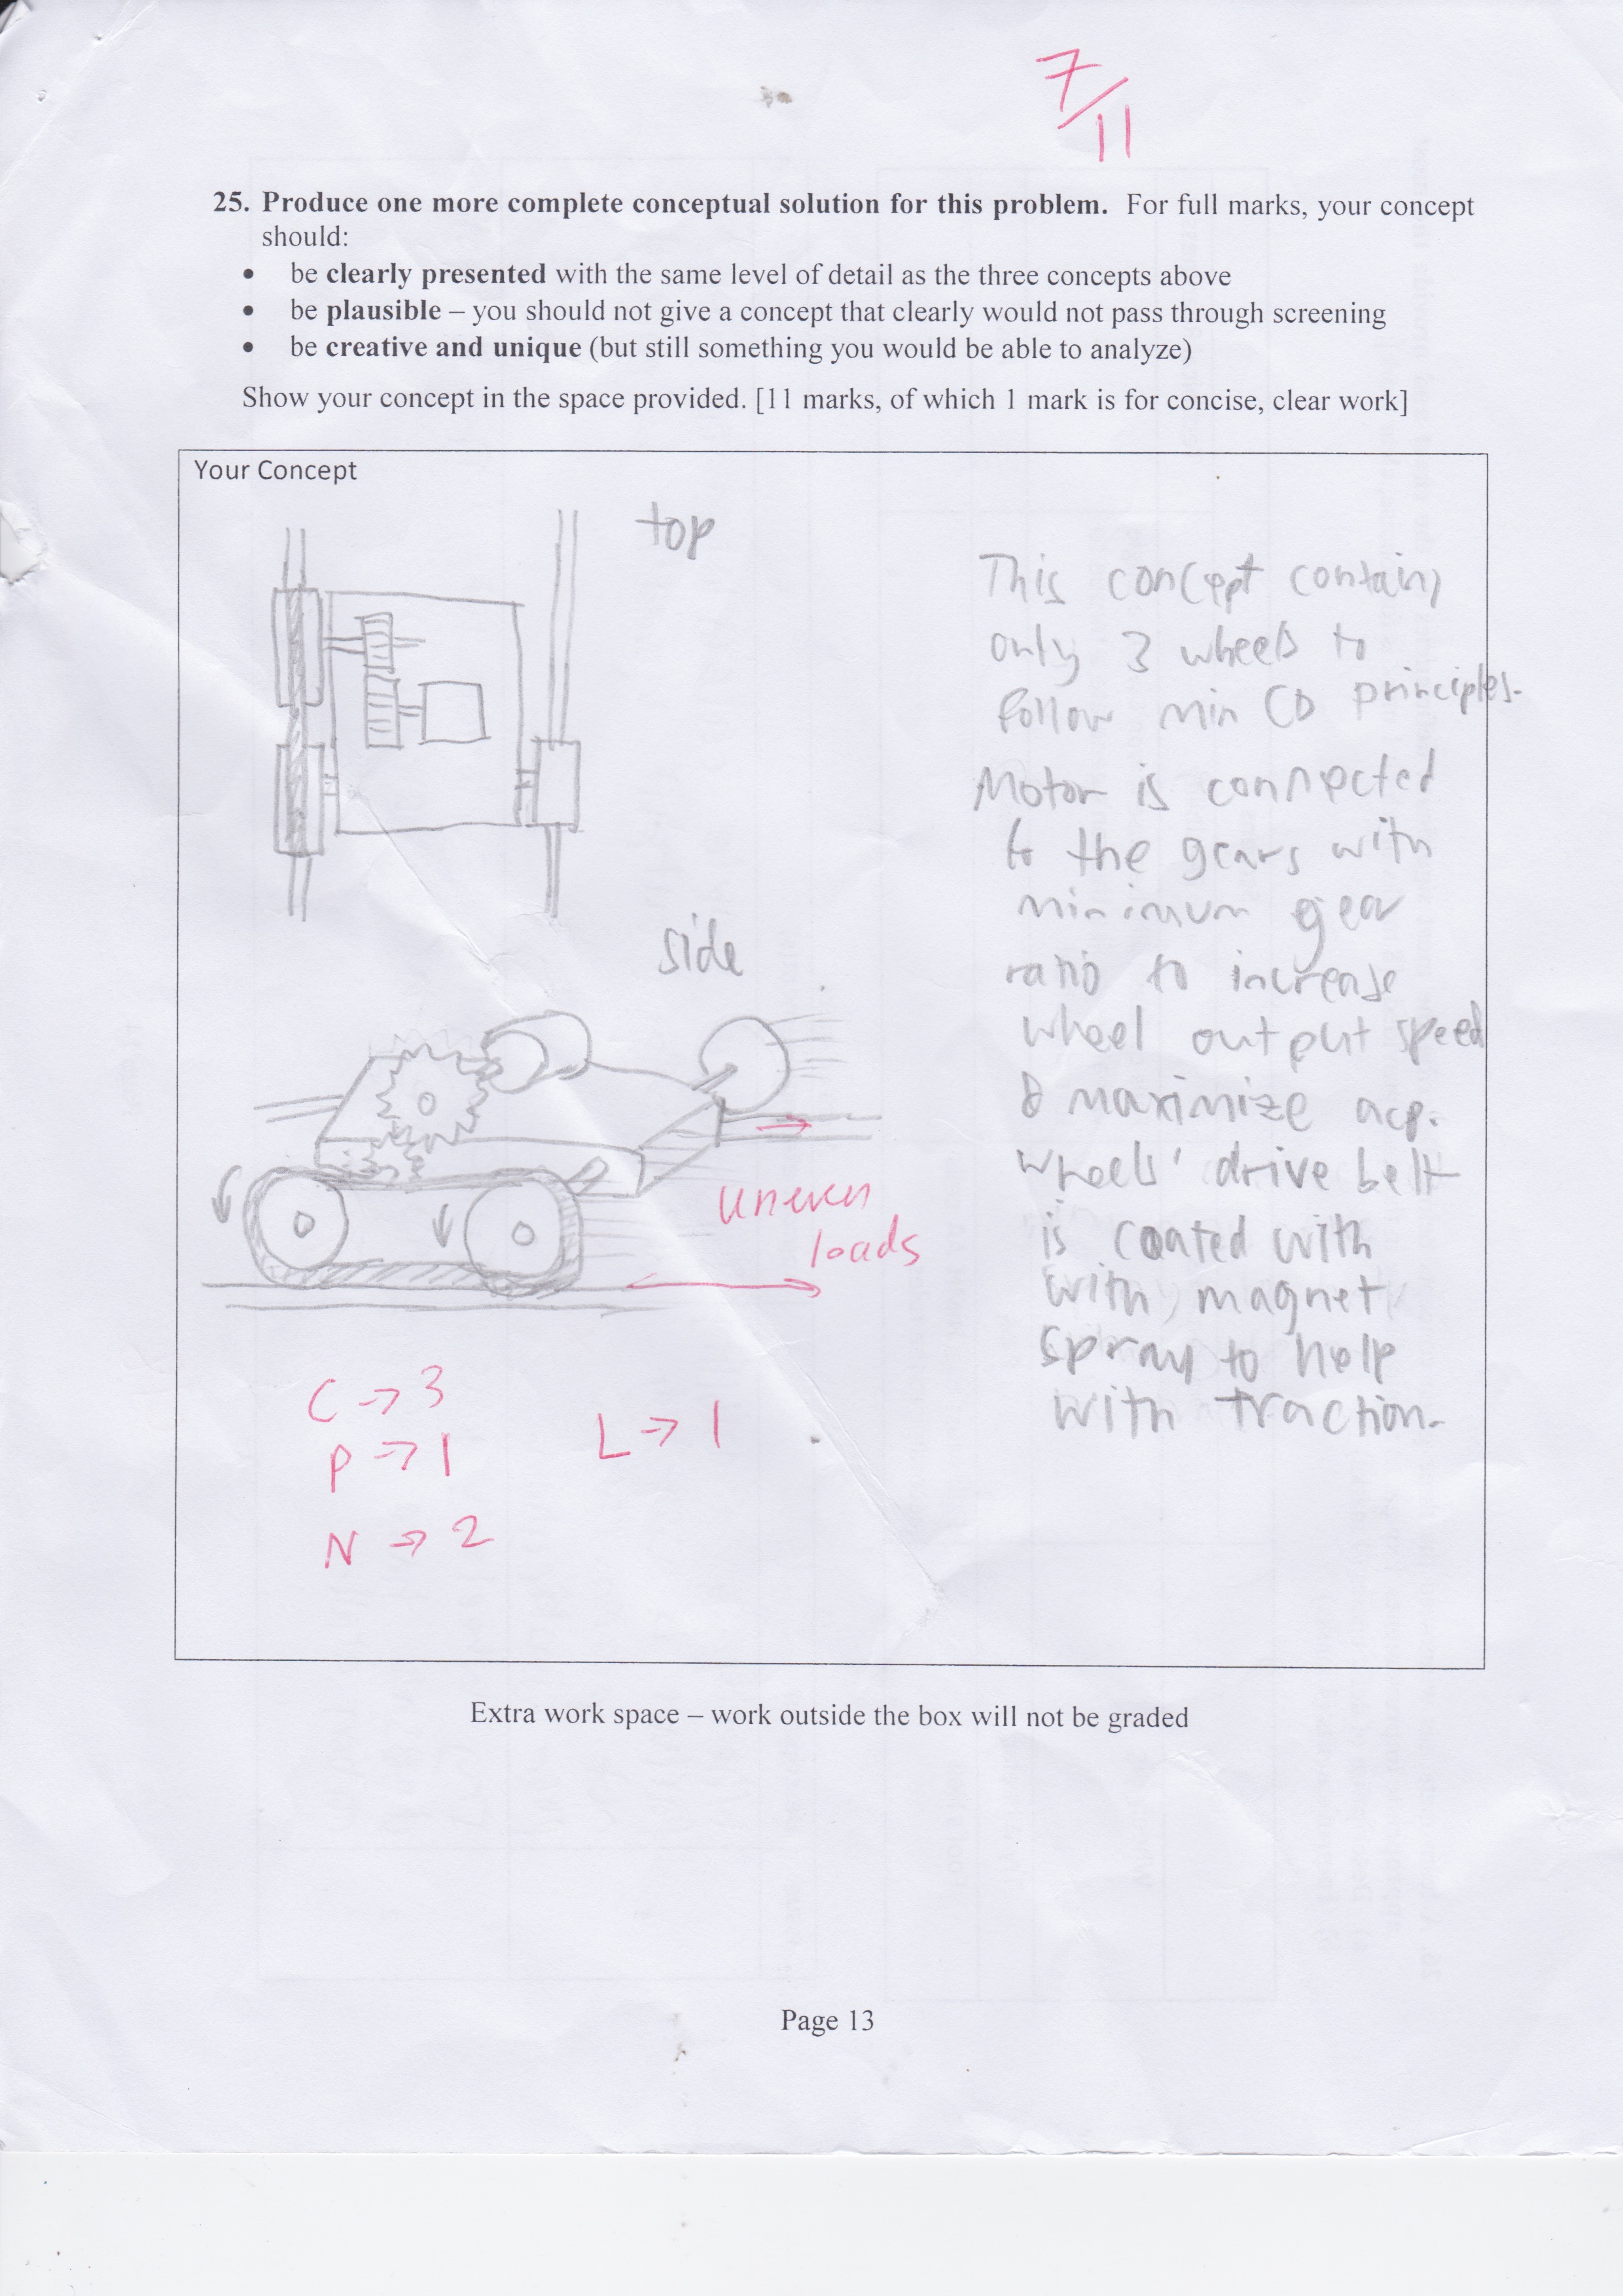 7/11
25. Produce one more complete conceptual solution for this problem. For full marks, your concept
should:
• be clearly presented with the same level of detail as the three concepts above
• be plausible – you should not give a concept that clearly would not pass through screening
• be creative and unique (but still something you would be able to analyze)
Show your concept in the space provided. [11 marks, of which 1 mark is for concise, clear work]
Your Concept
top
side
uneven
loads
C → 3
P → 1
N → 2
L → 1
This concept contains
only 3 wheels to
follow min CD principles.
Motor is connected
to the gears with
minimum gear
ratio to increase
wheel output speed
& maximize acp.
Wheels' drive belt
is coated with
with magnet
spray to help
with traction.
Extra work space – work outside the box will not be graded
Page 13